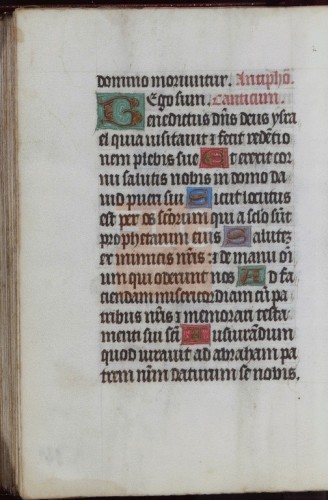 domino moriuntur. Antipho.
Ego sum. Canticum.
Benedictus dn̄s deus ysra
el quia visitauit ⁊ fecit redētio
nem plebis sue Et erexit cor
nu salutis nobis in domo da
uid pueri sui Sicut locutus
est per os sc̄orum qui a sc̄lo sūt
prophetarum eius Salutez
ex inimicis nr̄is : ⁊ de manu oī
um qui oderunt nos Ad fa
ciendam misericordiam cū pa
tribus nr̄is ⁊ memorari testa
menti sui sc̄i Iusiurādum
quod iurauit ad abraham pa
trem nr̄m daturum se nobis.